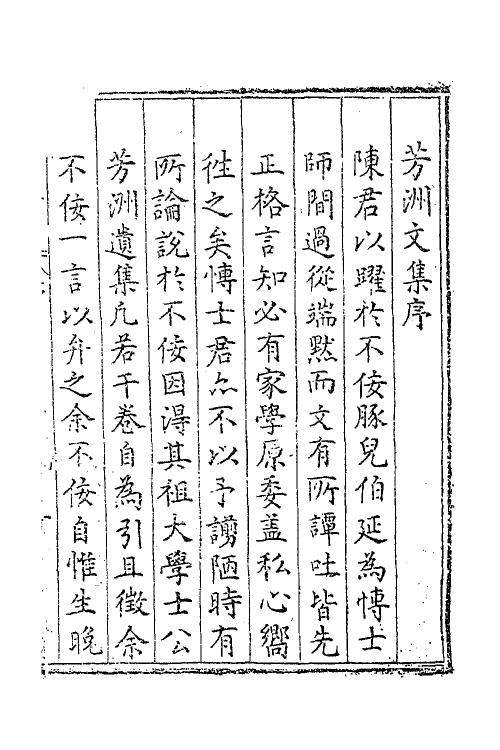 芳洲文集序
陳君以躍於不佞豚兒伯延為愽士
師間過從端黙而文有所譚吐皆先
正格言知必有家學原委盖私心嚮
徃之矣愽士君亦不以予謭陋時有
所論說於不佞因得其祖大學士公
芳洲遺集凢若干卷自為引且徵余
不佞一言以弁之余不佞自惟生晚